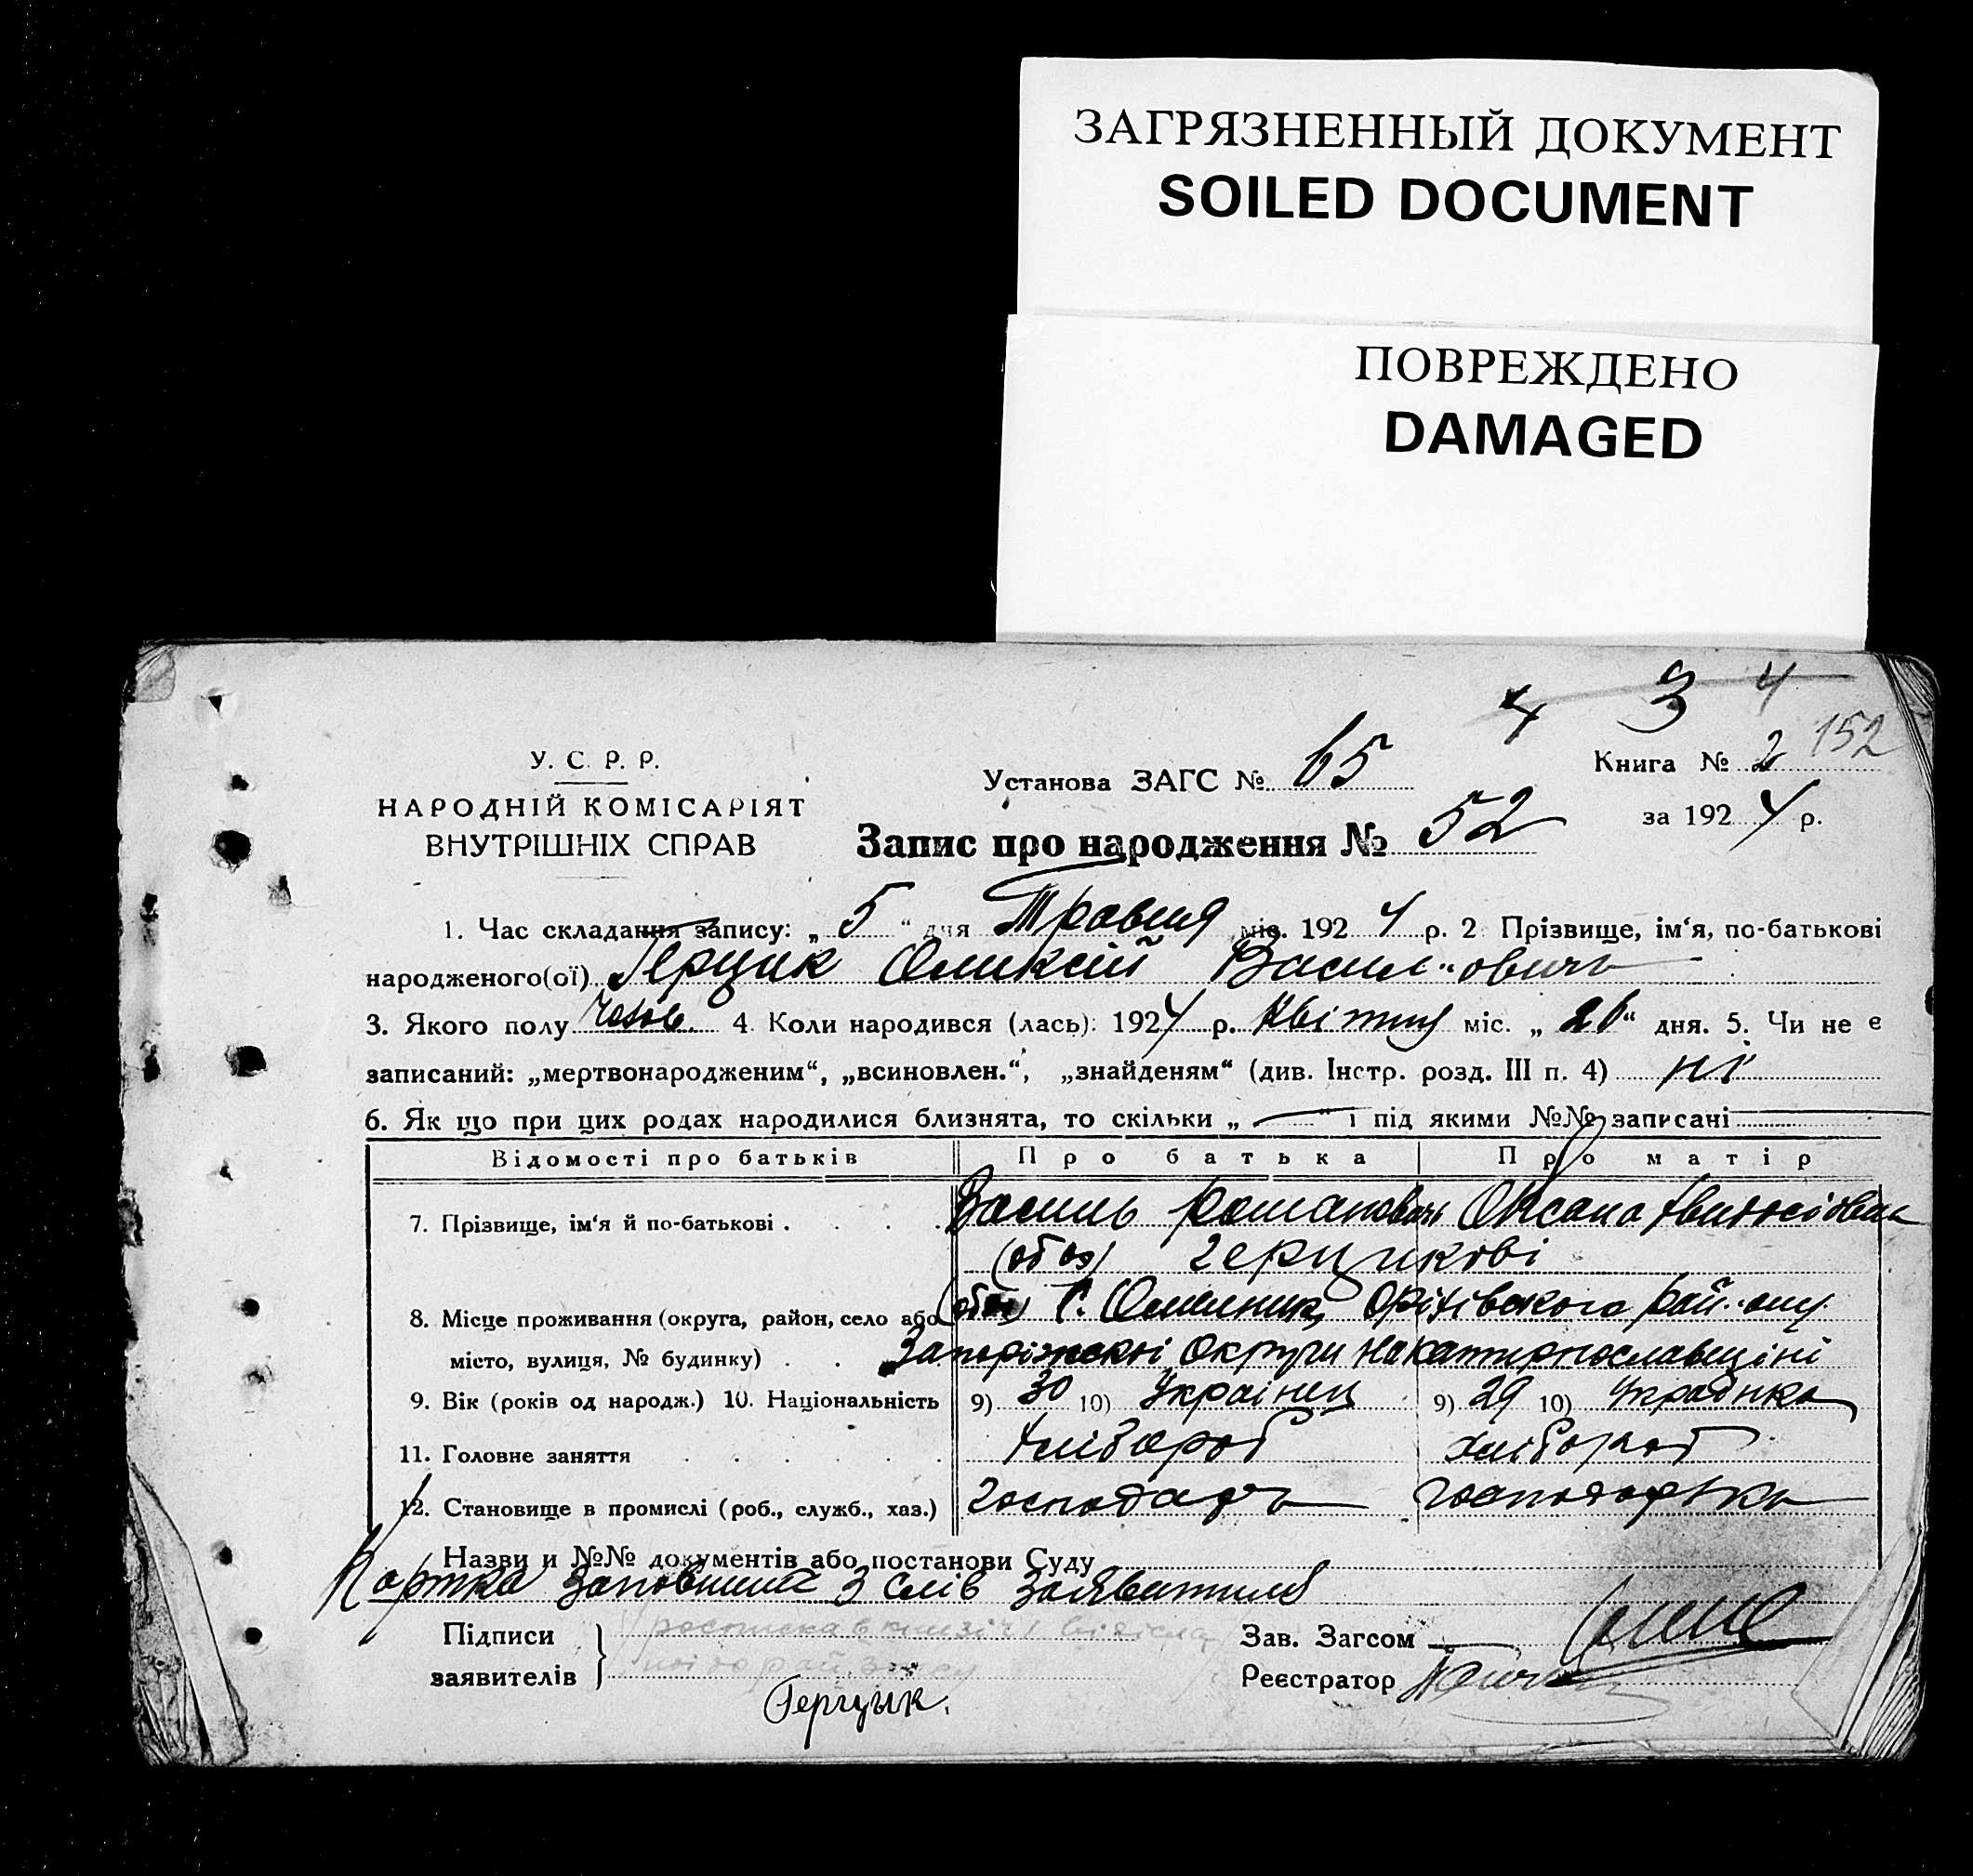 ЗАГРЯЗНЕННЫЙ ДОКУМЕНТ
SOILED DOCUMENT
ПОВРЕЖДЕНО
DAMAGED
4 3 4
У. С. Р. Р.
НАРОДНІЙ КОМІСАРІЯТ
ВНУТРІШНІХ СПРАВ
Установа ЗАГС № 65
Книга № 2 152
за 1924 р.
Запис про народження № 52
1. Час складання запису: „ 5 “ дня Травня міс. 1924 р. 2 Прізвище, ім‘я, по-батькові
народженого(ої) Герцик Оликсій Васильович
3. Якого полу чолов. 4. Коли народився (лась): 1924 р. Квітня міс. „ 26 “ дня. 5. Чи не є
записаний: „мертвонародженим“, „всиновлен.“, „знайденям“ (див. Інстр. розд. III п. 4) ні
6. Як що при цих родах народилися близнята, то скільки „ “ і під якими №№ записані
Відомості про батьків Про батька Про матір
7. Прізвище, ім‘я й по-батькові . Василь Романович Оксана
(обоє) Герцикові
8. Місце проживання (округа, район, село або (обоє) С. Омельник, Оріхівського рай-ону
місто, вулиця, № будинку) . . Запоріжскої Округи на Катиринославщіні
9. Вік (років од народж.) 10. Національність 9) 30 10) Українец 9) 29 10) Українка
11. Головне заняття хлібороб хлібороб
12. Становище в промислі (роб., служб., хаз.) господарь господарька
Назви и №№ документів або постанови Суду
Картка заповнина З слів заявитиля
Підписи
заявителів
росписка в книзі
Герцык.
Зав. Загсом
Реєстратор